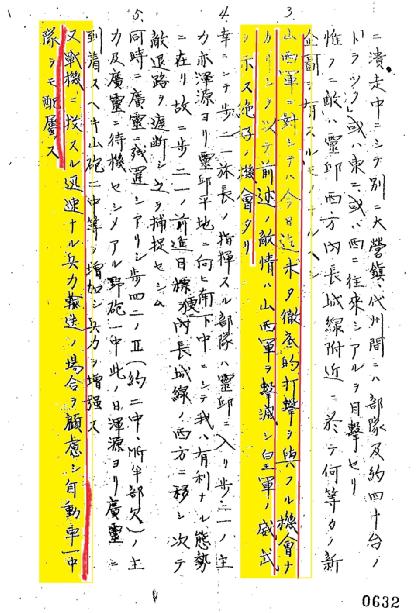 ニ潰走中ニシテ別ニ大営鎮、代州間ニハ部隊及約四十台ノ
トラック或ハ東ニ或ハ西ニ往来シアルヲ目撃セリ
惟フニ敵ハ霊邱西方内長城線附近ニ於テ何等カノ新
企図ヲ有スルモノナルヘシ
3. 山西軍ニ対シテハ今日迄未タ徹底的打撃ヲ与フル機会ナ
カリシヲ以テ前述ノ敵情ハ山西軍ヲ撃滅シ皇軍ノ威武
ヲ示ス絶好ノ機会タリ
4. 幸ニシテ歩二一旅長ノ指揮スル部隊ハ霊邱ニ入リ歩二一ノ主
力亦渾源ヨリ霊邱平地ニ向ヒ南下中ニシテ我ハ有利ナル態勢
ニ在リ故ニ歩二一ノ前進目標ヲ内長城線ノ西方ニ移シ次テ
敵退路ヲ遮断シ之ヲ捕捉セシム
5. 同時ニ広霊ニ残置シアリシ歩四二ノⅡ(約二中、所半部欠)ノ主
力及広霊ニ待機セシメアル野砲一中此ノ日渾源ヨリ広霊ニ
到着スヘキ山砲二中等ヲ増加シ兵力ヲ増強ス
又戦機ニ投スル迅速ナル兵力輸送ノ場合ヲ顧慮シ自動車一中
隊ヲモ配属ス
0632